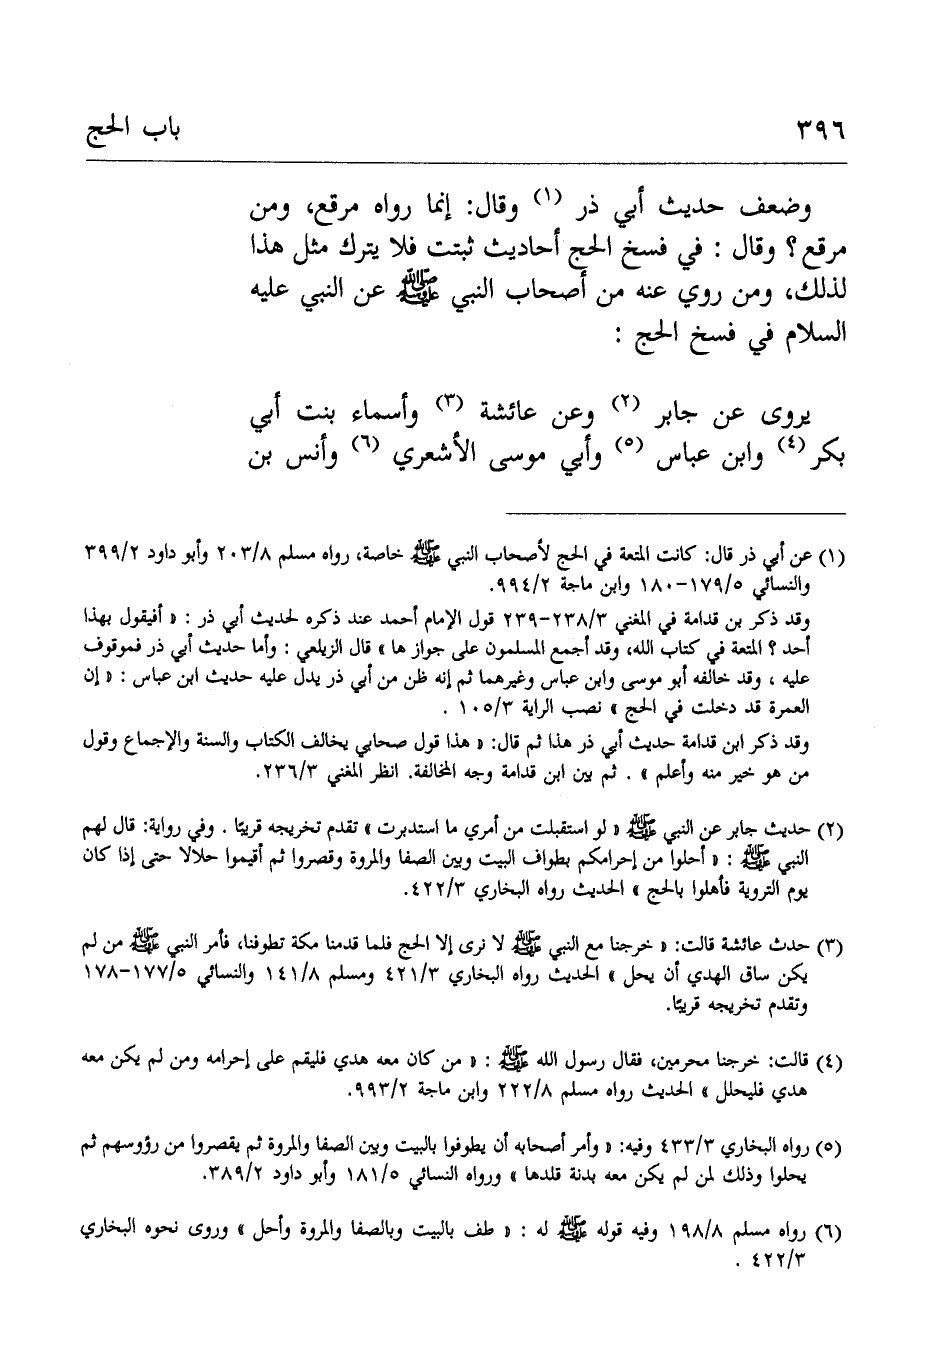 ٣٩٦ باب الحج
وضعف حديث أبي ذر (١) وقال: إنما رواه مرقع، ومن
مرقع؟ وقال : في فسخ الحج أحاديث ثبتت فلا يترك مثل هذا
لذلك، ومن روي عنه من أصحاب النبي ﷺ عن النبي عليه
السلام في فسخ الحج :
يروى عن جابر (٢) وعن عائشة (٣) وأسماء بنت أبي
بكر (٤) وابن عباس (٥) وأبي موسى الأشعري (٦) وأنس بن
(١) عن أبي ذر قال: كانت المتعة في الحج لأصحاب النبي ﷺ خاصة، رواه مسلم ٢٠٣/٨ وأبو داود ٣٩٩/٢
والنسائي ١٧٩/٥-١٨٠ وابن ماجة ٩٩٤/٢.
وقد ذكر بن قدامة في المغني ٢٣٨/٣-٢٣٩ قول الإمام أحمد عند ذكره لحديث أبي ذر : « أفيقول بهذا
أحد ؟ المتعة في كتاب الله، وقد أجمع المسلمون على جواز ها » قال الزيلعي : وأما حديث أبي ذر فموقوف
عليه ، وقد خالفه أبو موسى وابن عباس وغيرهما ثم إنه ظن من أبي ذر يدل عليه حديث ابن عباس : « إن
العمرة قد دخلت في الحج » نصب الراية ١٠٥/٣ .
وقد ذكر ابن قدامة حديث أبي ذر هذا ثم قال: « هذا قول صحابي يخالف الكتاب والسنة والإجماع وقول
من هو خير منه وأعلم » . ثم بين ابن قدامة وجه المخالفة. انظر المغني ٢٣٦/٣.
(٢) حديث جابر عن النبي ﷺ « لو استقبلت من أمري ما استدبرت » تقدم تخريجه قريبًا . وفي رواية: قال لهم
النبي ﷺ : « أحلوا من إحرامكم بطواف البيت وبين الصفا والمروة وقصروا ثم أقيموا حلالا حتى إذا كان
يوم التروية فأهلوا بالحج » الحديث رواه البخاري ٤٢٢/٣.
(٣) حدث عائشة قالت: « خرجنا مع النبي ﷺ لا نرى إلا الحج فلما قدمنا مكة تطوفنا، فأمر النبي ﷺ من لم
يكن ساق الهدي أن يحل » الحديث رواه البخاري ٤٢١/٣ ومسلم ١٤١/٨ والنسائي ١٧٧/٥-١٧٨
وتقدم تخريجه قريبًا.
(٤) قالت: خرجنا محرمين، فقال رسول الله ﷺ : « من كان معه هدي فليقم على إحرامه ومن لم يكن معه
هدي فليحلل » الحديث رواه مسلم ٢٢٢/٨ وابن ماجة ٩٩٣/٢.
(٥) رواه البخاري ٤٣٣/٣ وفيه: « وأمر أصحابه أن يطوفوا بالبيت وبين الصفا والمروة ثم يقصروا من رؤوسهم ثم
يحلوا وذلك لمن لم يكن معه بدنة قلدها » ورواه النسائي ١٨١/٥ وأبو داود ٣٨٩/٢.
(٦) رواه مسلم ١٩٨/٨ وفيه قوله ﷺ له : « طف بالبيت وبالصفا والمروة وأحل » وروى نحوه البخاري
٤٢٢/٣ .